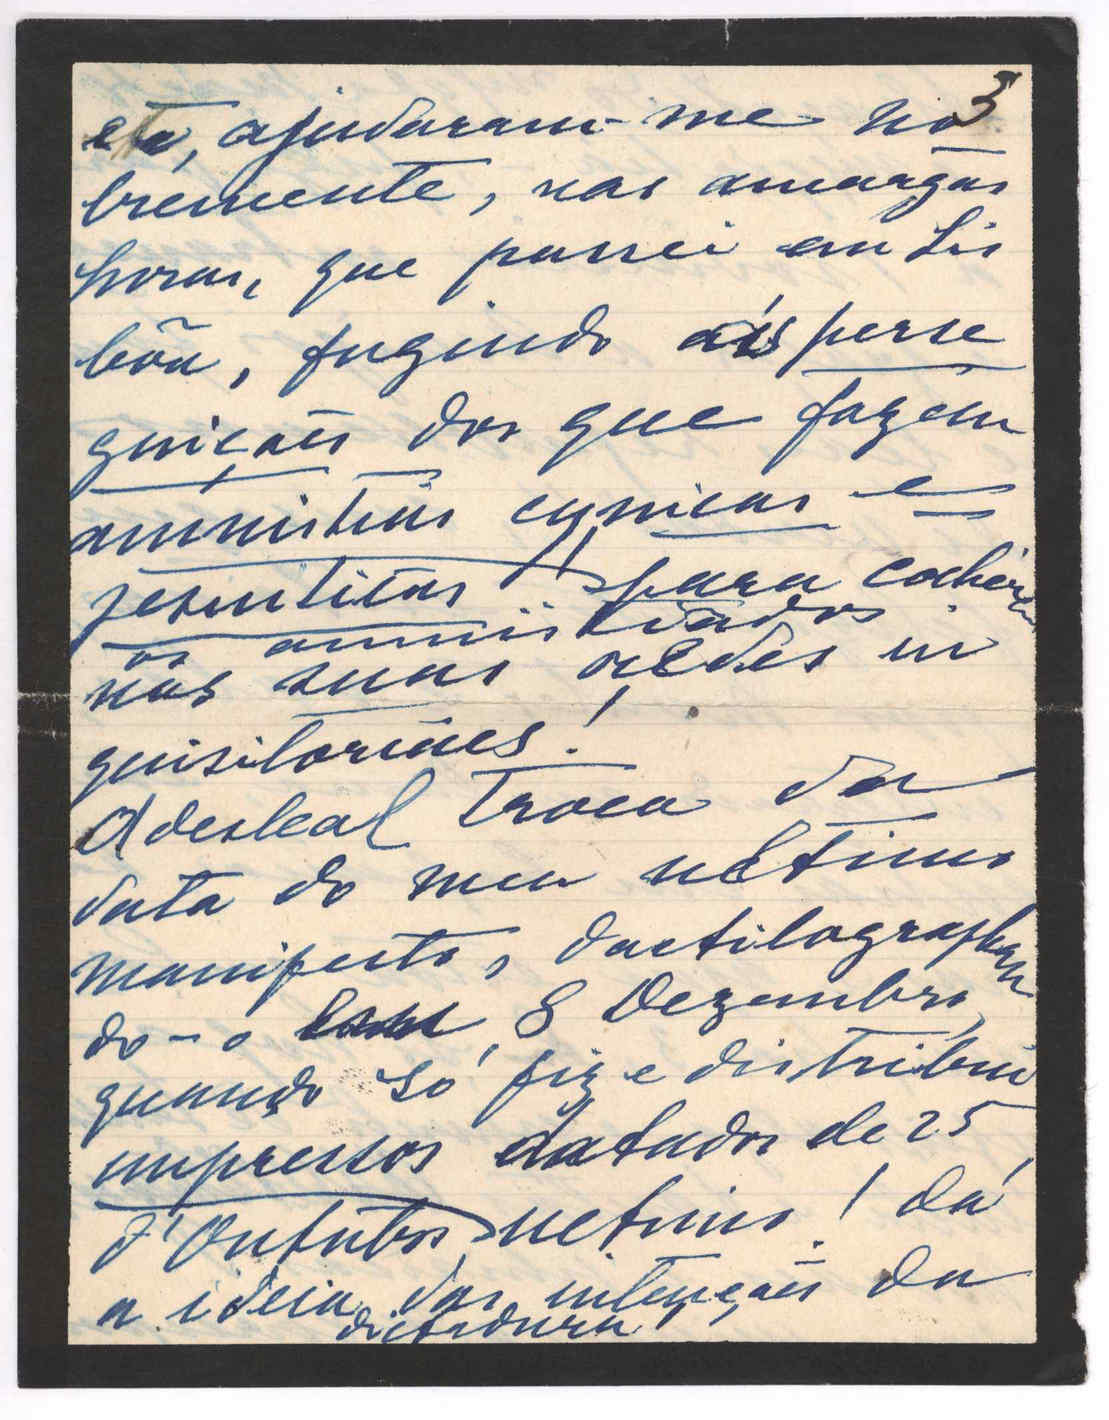 3
etc, ajudaram-me no
bremente, nas amargas
horas, que passei em Lis
bôa, fugindo ás perse
guições dos que fazem
amnistias cynicas e
jesuiticas para colherem
os amnistiados
nas suas rêdes in
quisitoriaes!
A desleal troca da
data do meu ultimo
manifesto, dactilographan
do-o 8 Dezembro,
quando só fiz e distribui
impressos datados de 25
d'Outubro ultimo! dá
a ideia das intenções da
dictadura